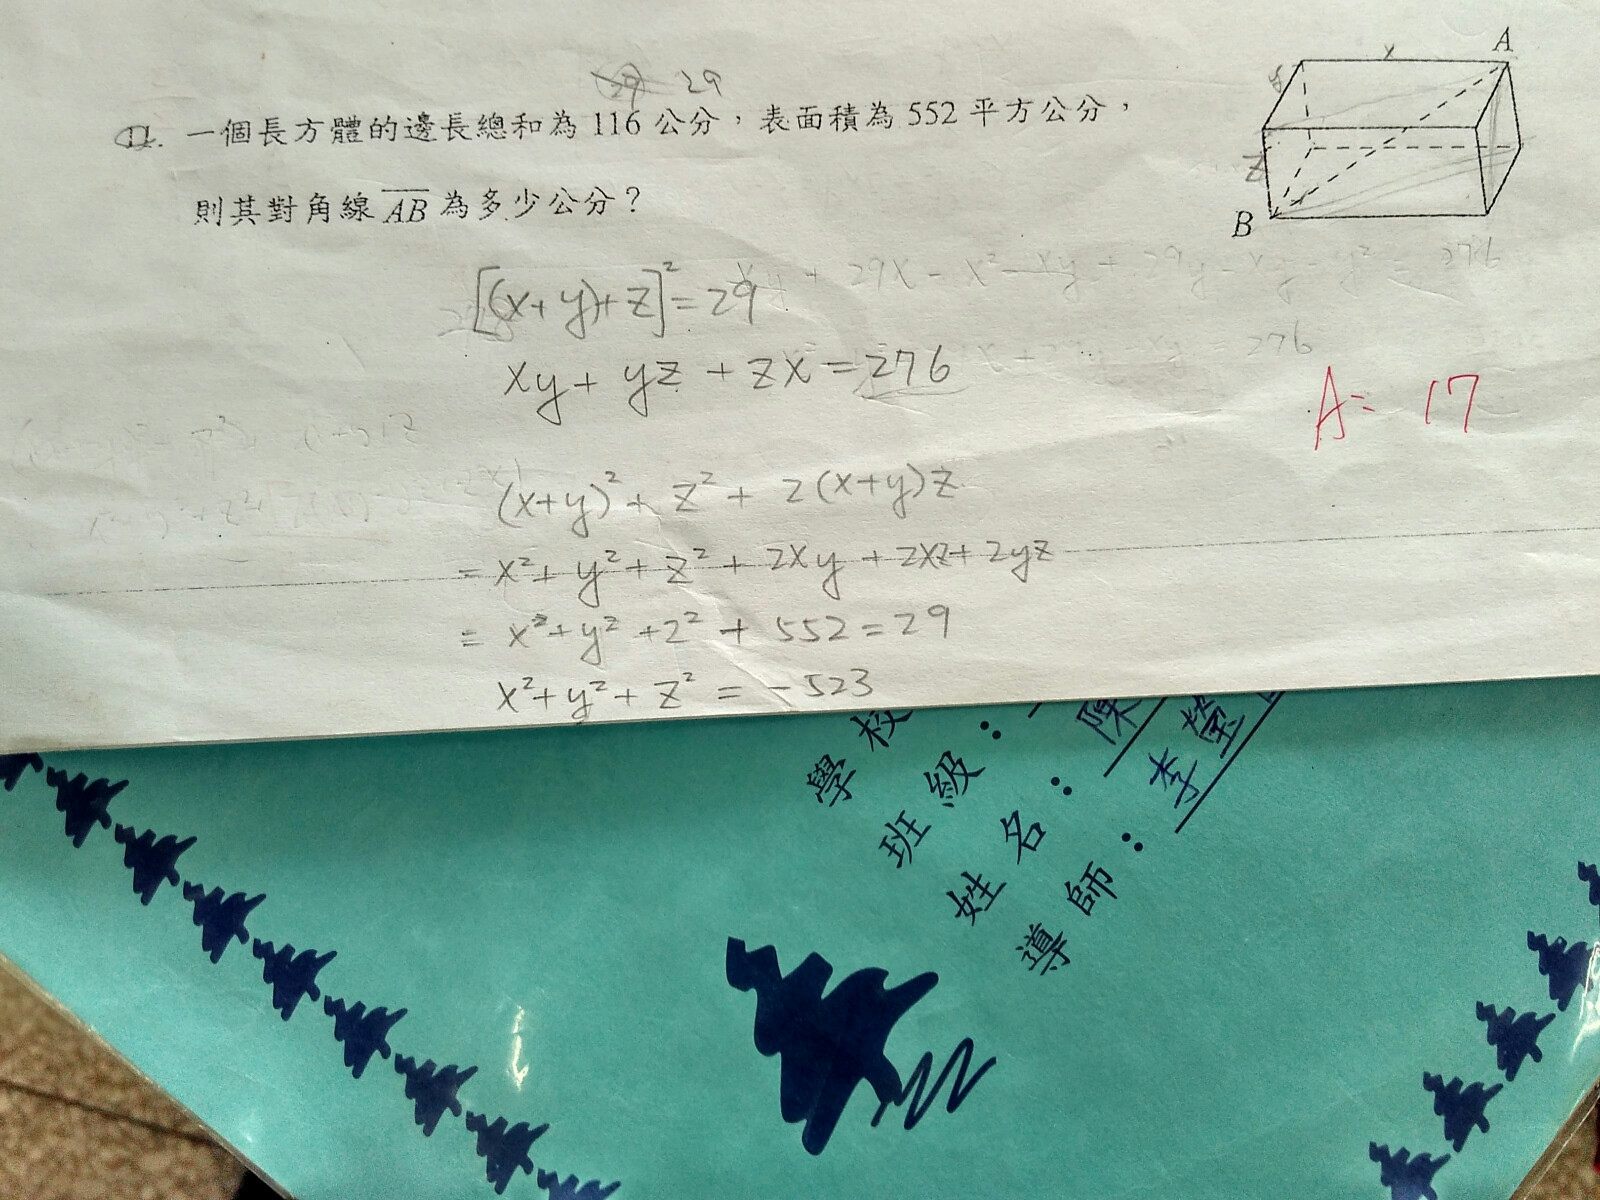 29
11. 一個長方體的邊長總和為 116 公分，表面積為 552 平方公分，
則其對角線 AB 為多少公分？
x
y
z
A
B
[(x+y)+z]²=29
xy+yz+zx=276
A= 17
(x+y)²+z²+2(x+y)z
=x²+y²+z²+2xy+2xz+2yz
=x²+y²+z²+552=29
x²+y²+z²=-523
學校
班級：
姓名：陳
導師：李瑩